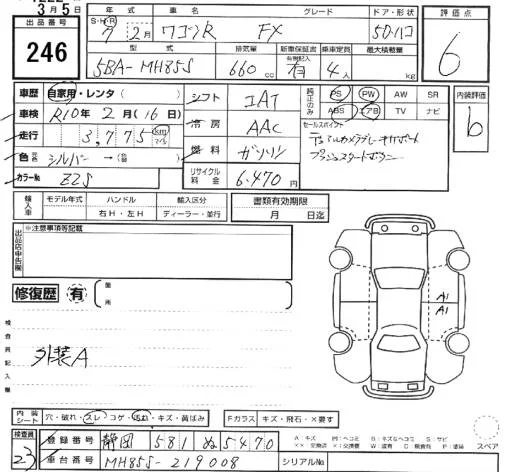 3月5日
出品番号
246
年式 車名 グレード ドア・形状
S・H・R 7年2月 ワゴンR FX 5D・ハコ
型式 排気量 新車保証書 乗車定員 最大積載量
有無記入
5BA-MH85S 660cc 有 4人 kg
評価点
6
車歴 自家用・レンタ( )
車検 R10年2月(16日)
走行 3,775 km マイル
色 シルバー →( )
カラーNo Z2S
シフト IAT
冷房 AAC
燃料 ガソリン
リサイクル料金 6,470円
純正のみ PS PW AW SR
ABS エアB TV ナビ
セールスポイント
デュアルカメラブレーキサポート
プッシュスタートボタン
内装評価
b
輸入車 モデル年式 ハンドル 輸入区分
右H・左H ディーラー・並行
書類有効期限
月 日迄
出品店申告欄
※注意事項等記載
修復歴 有 箇所
検査員記入欄
外装A
A1
A1
内装シート 穴・破れ・スレ・コゲ・汚れ・キズ・黄ばみ
Fガラス キズ・飛石・×要す
検査員
23
登録番号 静岡 581 ぬ 5470
車台番号 MH85S-219008
シリアルNo
A:キズ
スペア